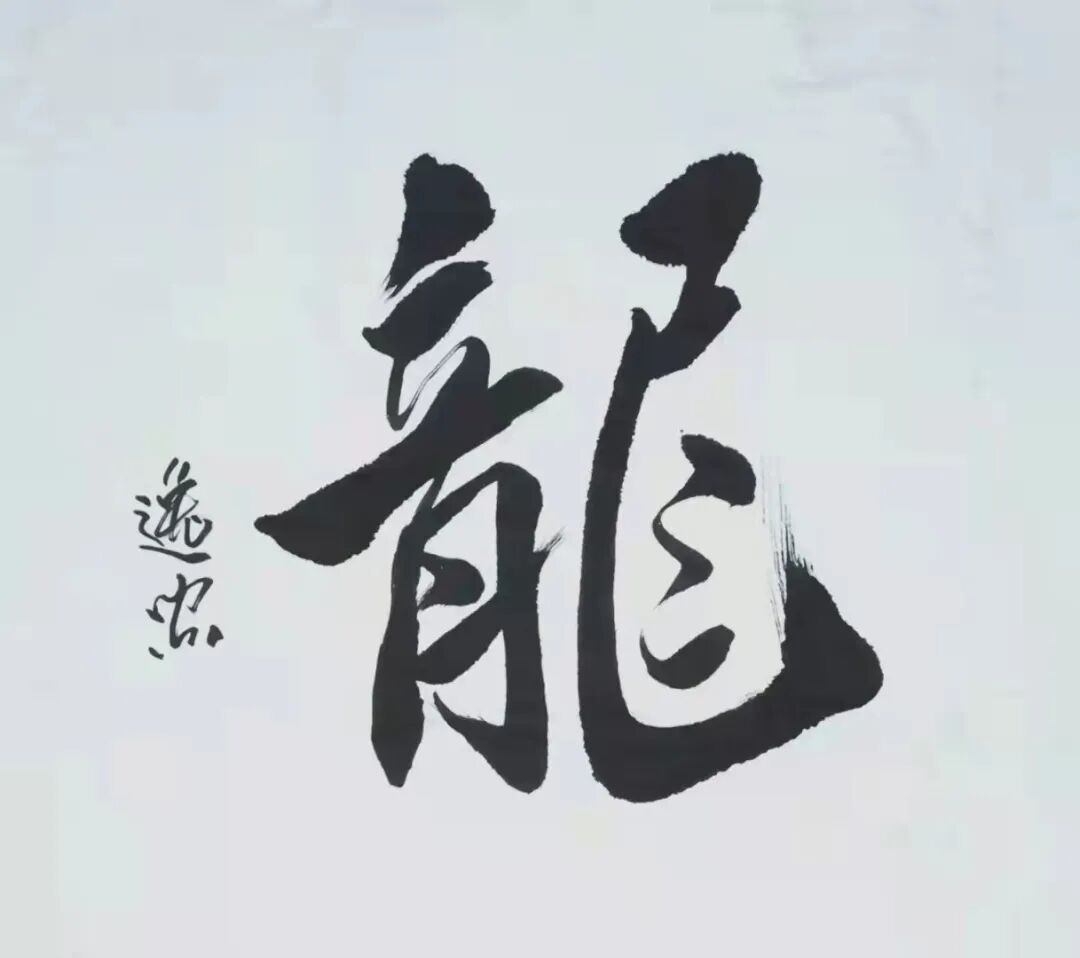 龍
逸忠